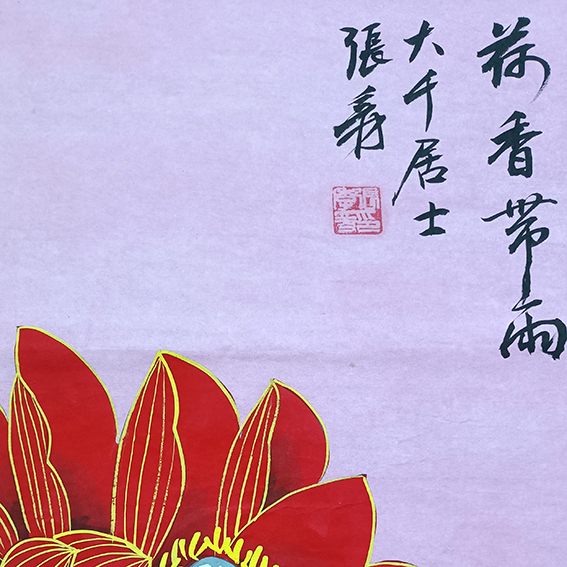 荷香带雨
大千居士
張爰